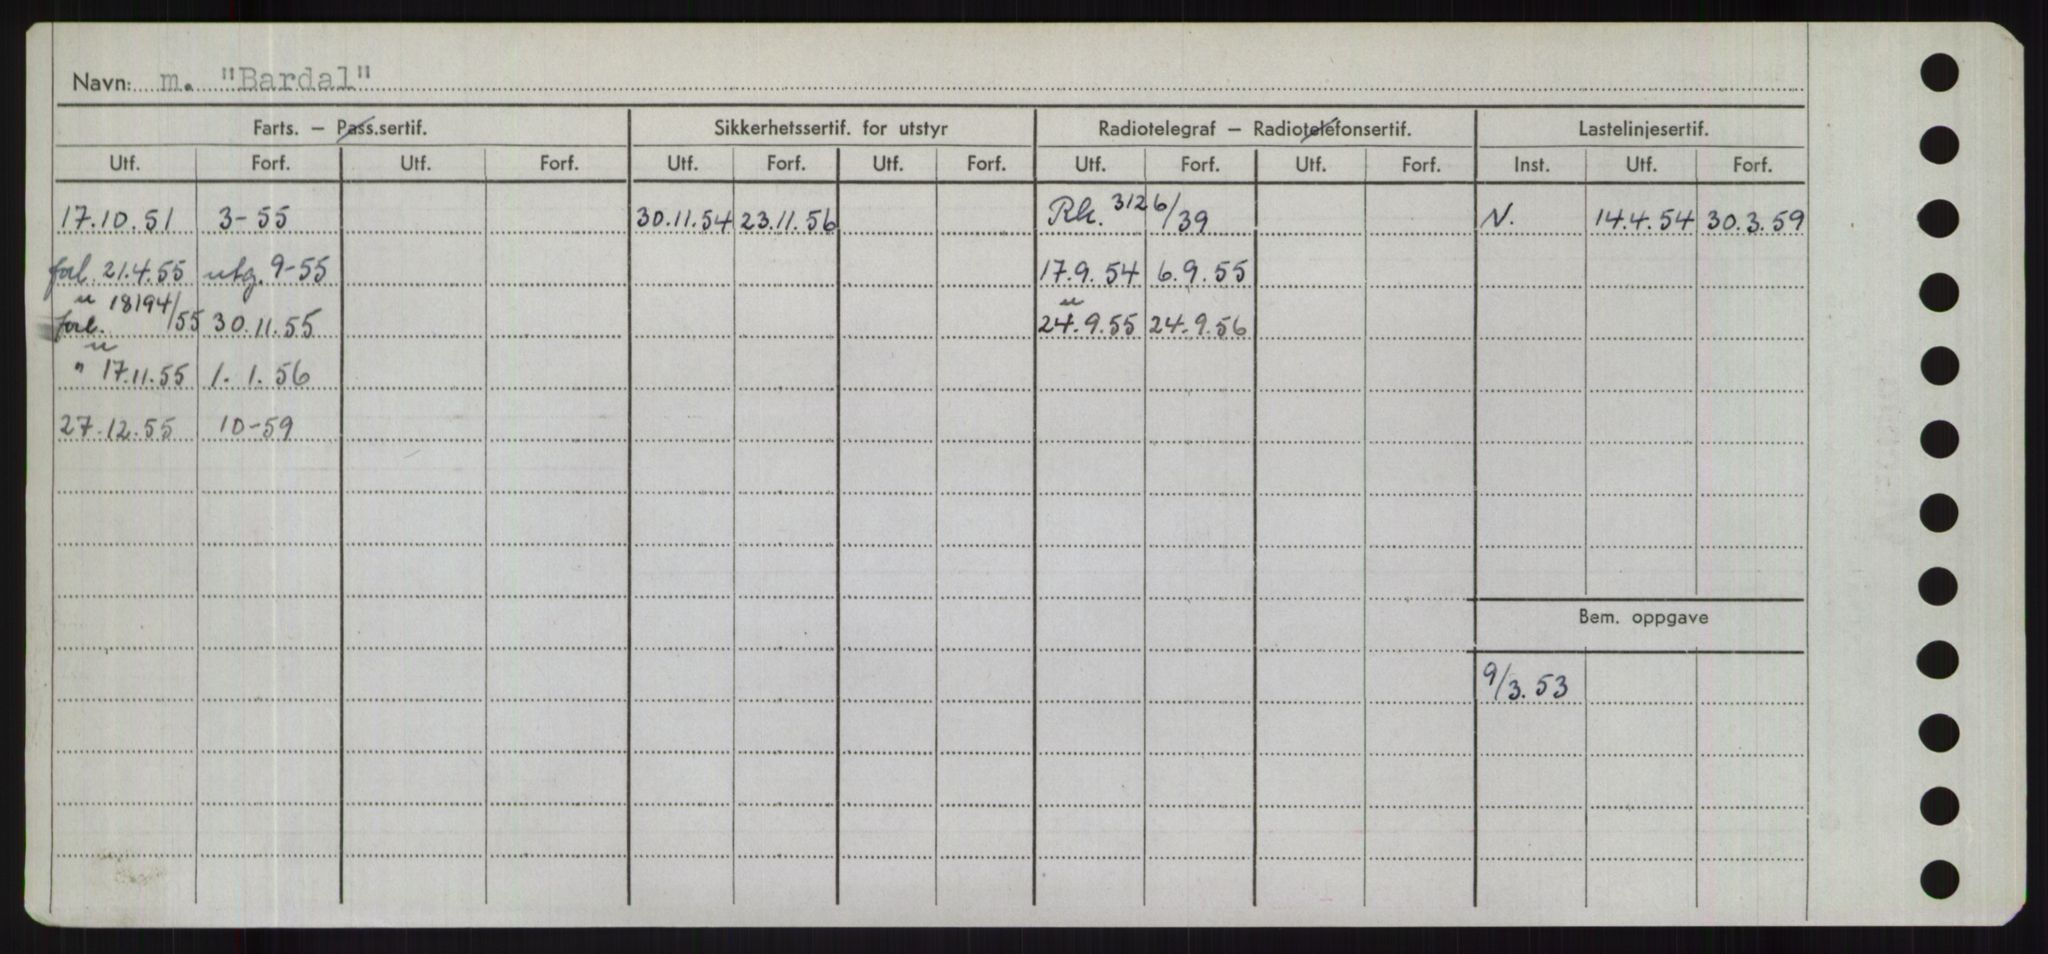 Navn: m. "Bardal"
Farts. – Pass.sertif. Sikkerhetssertif. for utstyr Radiotelegraf – Radiotelefonsertif. Lastelinjesertif.
Utf. Forf. Utf. Forf. Utf. Forf. Utf. Forf. Utf. Forf. Utf. Forf. Inst. Utf. Forf.
17.10.51 3-55 30.11.54 23.11.56 Rk. 3126/39 N. 14.4.54 30.3.59
forl. 21.4.55 utg. 9-55 17.9.54 6.9.55
u u
forl. 18194/55 30.11.55 24.9.55 24.9.56
u
" 17.11.55 1.1.56
27.12.55 10-59
Bem. oppgave
9/3.53